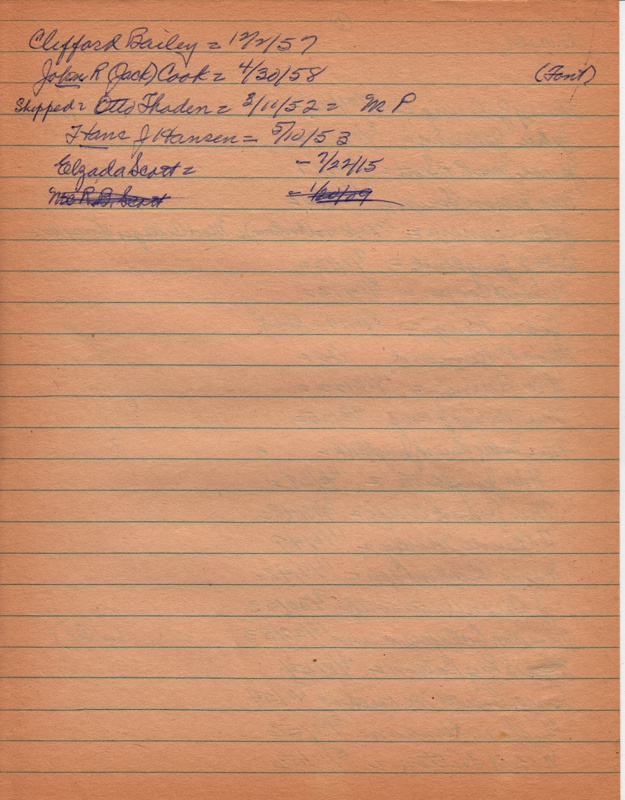 Clifford Bailey = 12/2/57
John R (Jack) Cook = 4/30/58 (Font)
Shipped = Otto Thaden = 3/11/52 = M P
Hans J Hansen = 5/10/53
Elzada Scott = - 7/22/15
Mrs R.B. Scott = 1/20/09